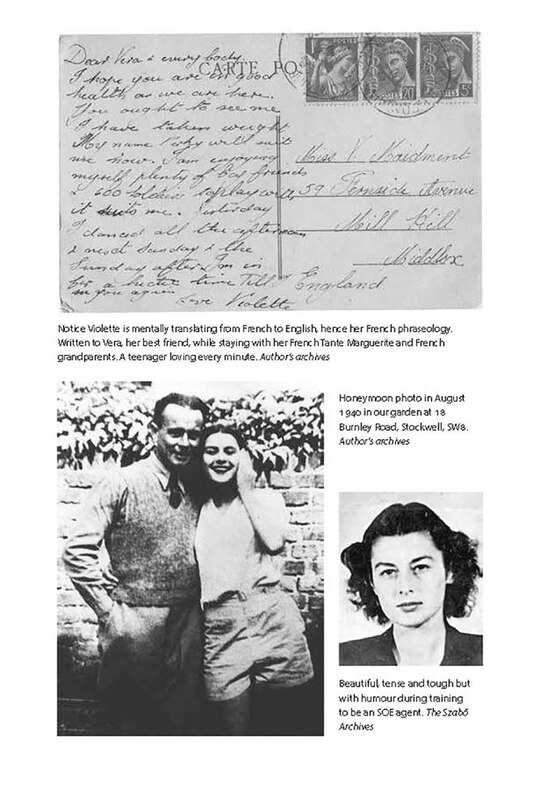 CARTE POS
POSTES
20
POSTES
5
Dear Vera & every body
I hope you are in good
health as we are here.
You ought to see me
I have taken weight
My name will suit
me now. I am enjoying
myself plenty of boy friends
& 600 soldiers to play with
it suits me. Yesterday
I danced all the afternoon
& next Sunday & the
Sunday after Im in
for a hectic time Till
you again
Love Violette
Miss V. Maidment
59 Fernside Avenue
Mill Hill
Middlsx
England
Notice Violette is mentally translating from French to English, hence her French phraseology.
Written to Vera, her best friend, while staying with her French Tante Marguerite and French
grandparents. A teenager loving every minute. Author's archives
Honeymoon photo in August
1940 in our garden at 18
Burnley Road, Stockwell, SW8.
Author's archives
Beautiful, tense and tough but
with humour during training
to be an SOE agent. The Szabó
Archives